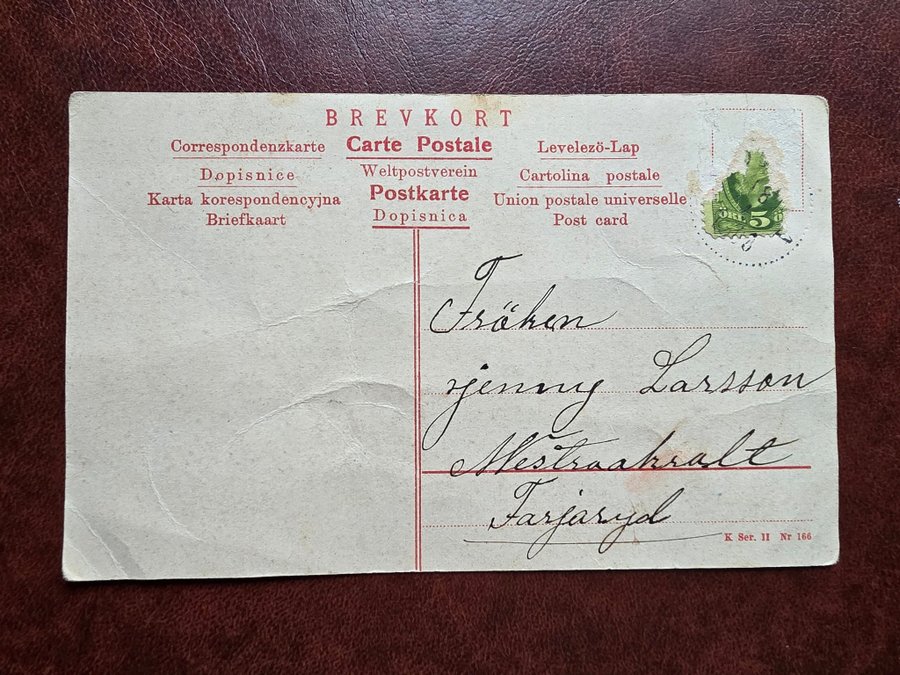 BREVKORT
Correspondenzkarte Carte Postale Levelezö-Lap
Dopisnice Weltpostverein Cartolina postale
Karta korespondencyjna Postkarte Union postale universelle
Briefkaart Dopisnica Post card
ÖRE 5
Fröken
Jenny Larsson
Westraakralt
Farjaryd
K Ser. II Nr 166